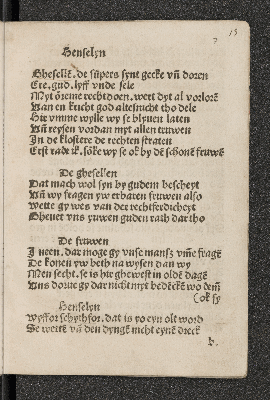 15
Henselyn
Ghesellē. de sūpers synt gecke vñ doren
Ere. gud. lyff vnde sele
Myt ōreme rechtdoen. wert dyt al vorlorē
Van en kucht god altesucht tho dele
Hir vmme wylle wy se blyuen laten
Vñ reysen vordan myt allen truwen
In de klostere de rechten straten
Erst radt ik. söke wy se ok by dē schonē fruwē
De ghesellen
Dat mach wol syn by gudem bescheyt
Vñ wy fragen yw erbaren fruwen also
Wette gy wes van der rechtferdicheyt
Gheuet vns yuwen guden rath dar tho
De fruwen
J neen. dar moge gy vnse mansz vme fragē
De konen yw beth na wysen dan wy
Men secht. se is hir ghewest in oldē dagē
Vns dorue gy dar nicht myt bedēckē wo dem
(ok sy
Henselyn
wyff or schythfor. dat is yo eyn olt word
Se wettē vā den dyngē nicht eynē dreck
b.